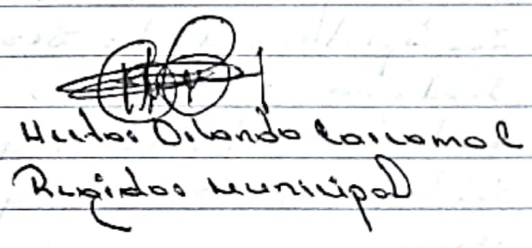 Hector Orlando Carcamo C
Regidor Municipal